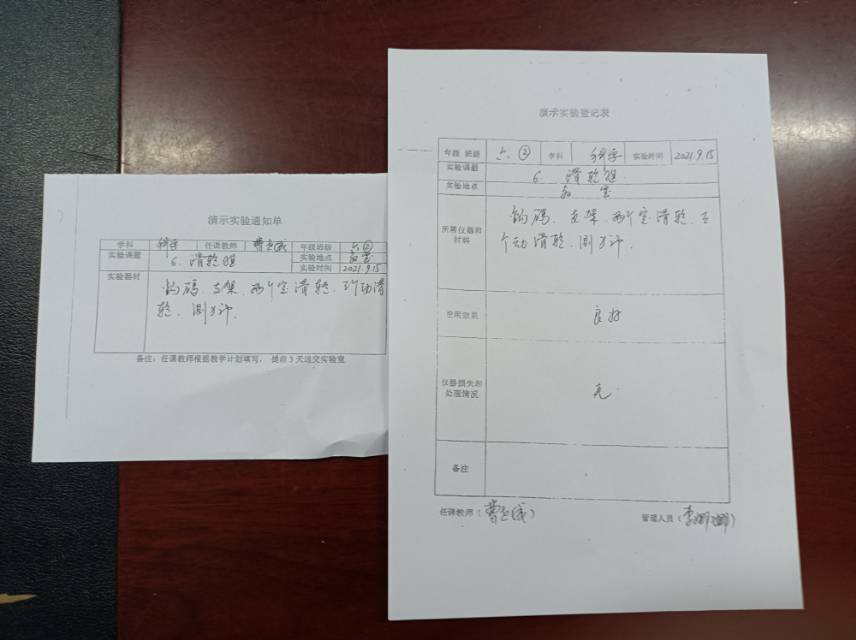 演示实验通知单
学科 科学 任课教师 年级班级 六②
实验课题 6. 滑轮组 实验地点 教室
实验时间 2021.9.15
实验器材 钩码、支架、两个定滑轮、动滑
轮、测力计.
备注:任课教师根据教学计划填写,提前3天送交实验室
演示实验登记表
年级 班级 六② 学科 科学 实验时间 2021.9.15
实验课题 6. 滑轮组.
实验地点 教室
所需仪器和材料 钩码、支架、两个定滑轮、
个动滑轮、测力计.
使用效果 良好
仪器损失和处理情况 无.
备注
任课教师( ) 管理人员(李娜娜)